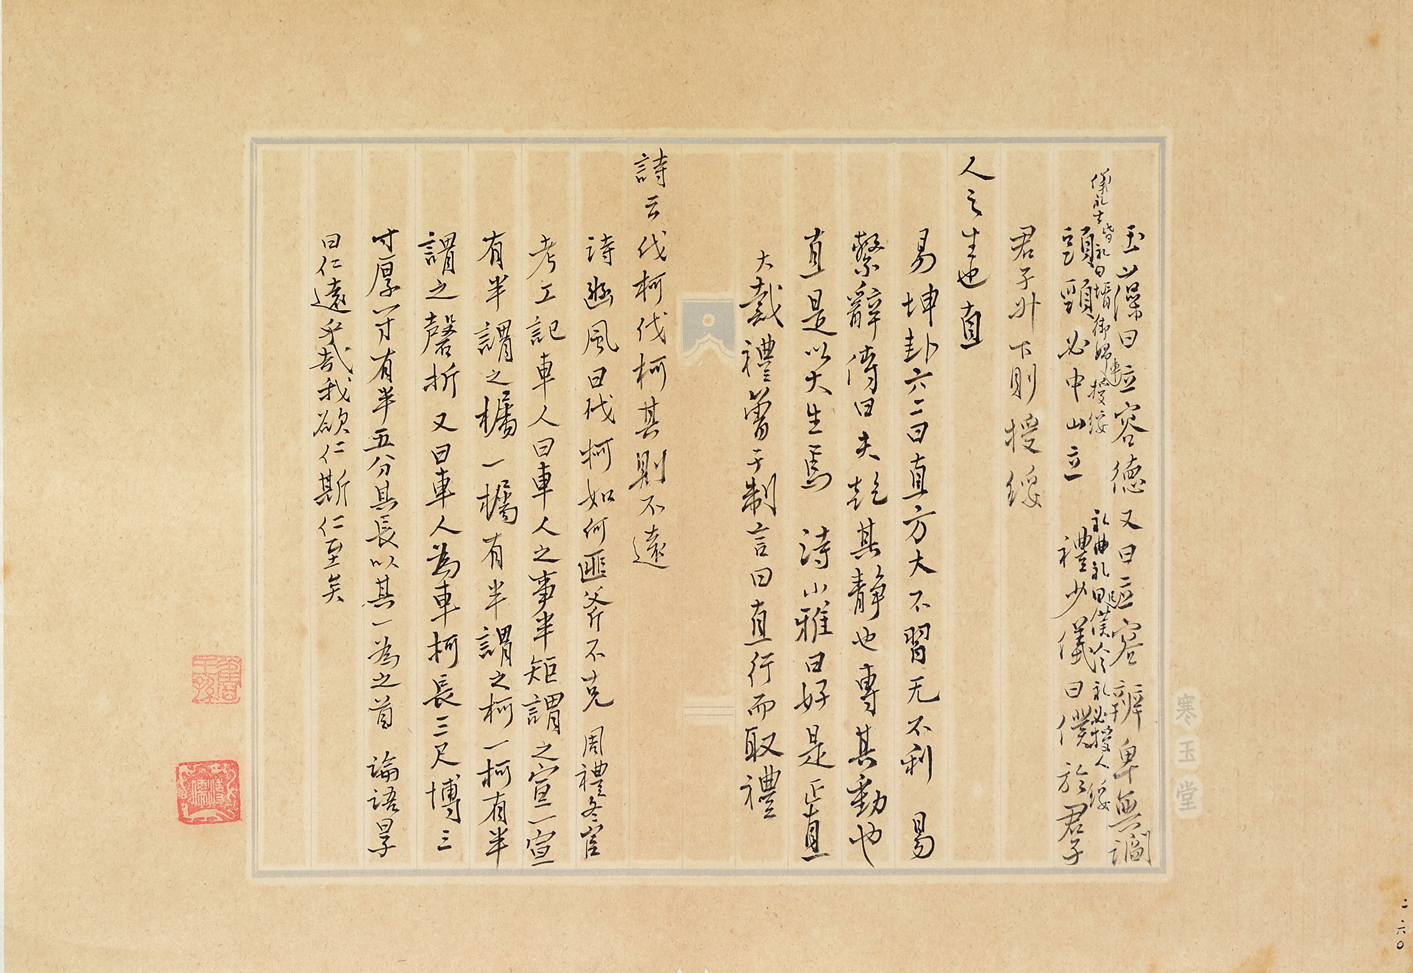 玉藻曰立容德又曰立容辨卑無讇
儀礼士昏礼曰壻御婦車授綏
礼曲礼曰僕人之礼必授人綏
頭頸必中山立　禮少儀曰僕於君子
君子升下則授綏
人之生也直
易坤卦六二曰直方大不習无不利　易
繫辭傳曰夫乾其靜也專其動也
直是以大生焉　詩小雅曰好是正直
大戴禮曾子制言曰直行而取禮
詩云伐柯伐柯其則不遠
詩豳風曰伐柯如何匪斧不克　周禮冬官
考工記車人曰車人之事半矩謂之宣一宣
有半謂之欘一欘有半謂之柯一柯有半
謂之磬折又曰車人為車柯長三尺博三
寸厚一寸有半五分其長以其一為之首　論語
曰仁遠乎哉我欲仁斯仁至矣
寒玉堂
二六〇